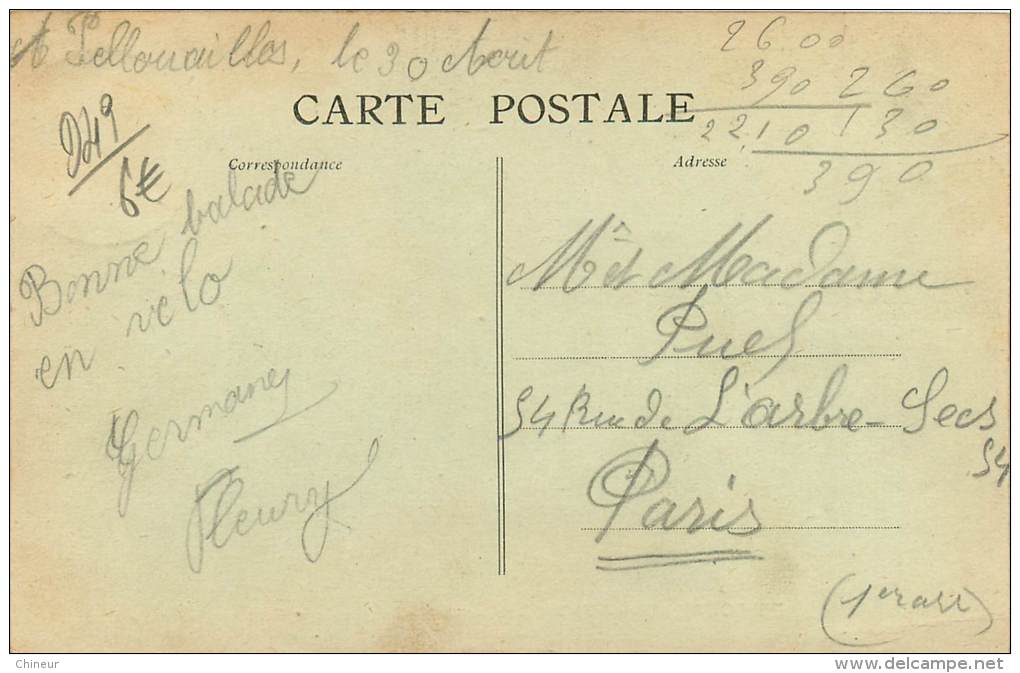 A Pellouailles, le 30 Aout
26.00
390 260
2210 130
390
CARTE POSTALE
249
6€
Correspondance
Adresse
Bonne balade
en vélo
Germaney
Fleury
Mr et Madame
Puel
54 Rue de L'arbre-Secs
54
Paris
(1er arr)
Chineur
www.delcampe.net